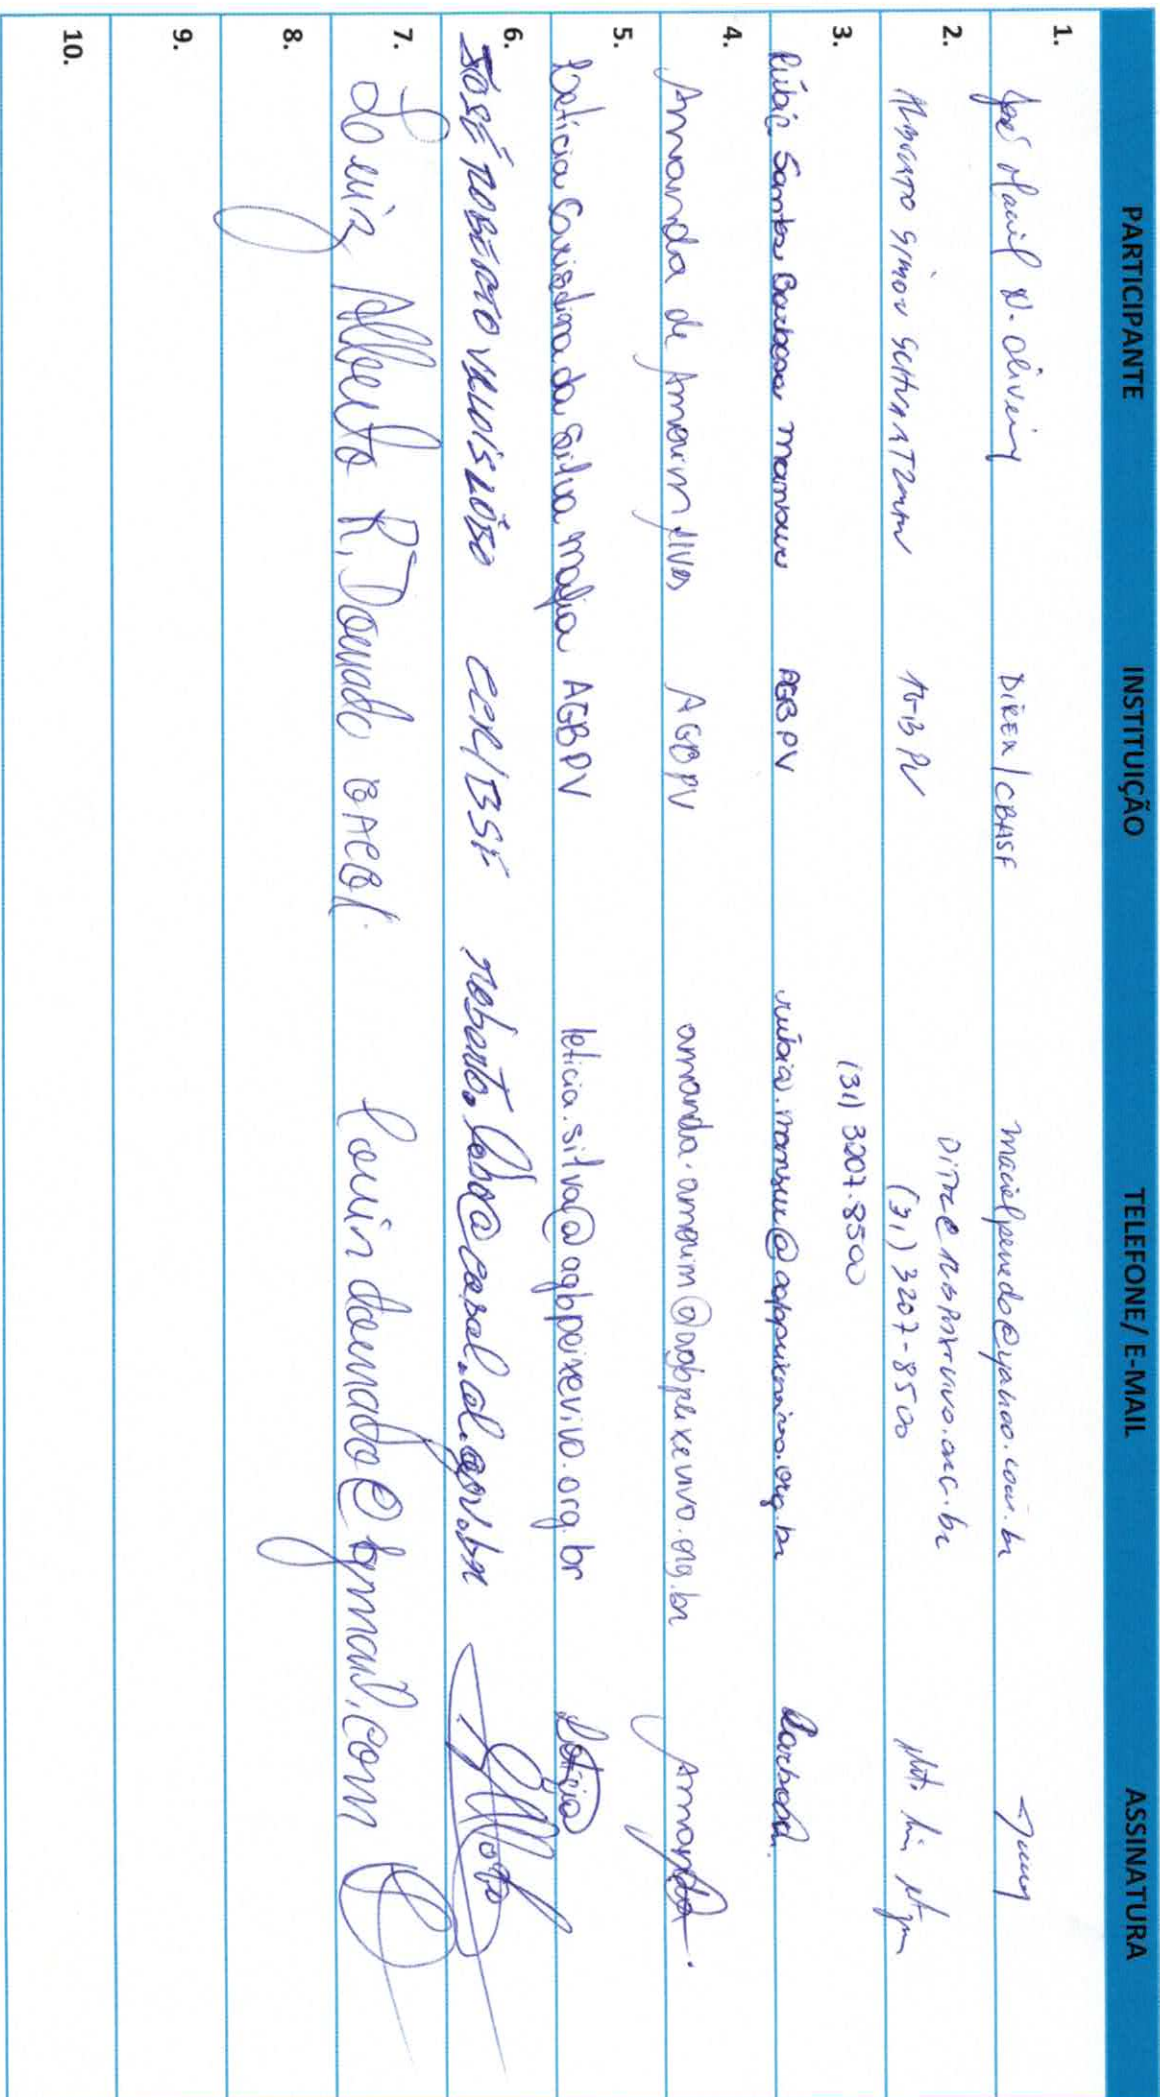 PARTICIPANTE INSTITUIÇÃO TELEFONE/ E-MAIL ASSINATURA
1. José Maciel N. Oliveira DIREX/CBHSF macielpenedo@yahoo.com.br
2. Alberto Simon Schvartzman AGBPV (31) 3207-8500
3. Rúbia Santos Barbosa Mansur AGBPV (31) 3207-8500 rubia.mansur@agbpeixevivo.org.br Barbosa.
4. Amanda de Amorim Alves AGBPV amanda.amorim@agbpeixevivo.org.br Amanda.
5. Letícia Cristina da Silva Malja AGBPV leticia.silva@agbpeixevivo.org.br Letícia
6. JOSÉ ROBERTO VALOIS LÔBO CCR/BSF roberto.lobo@casal.al.gov.br
7. Luiz Alberto R. Dourado
8.
9.
10.